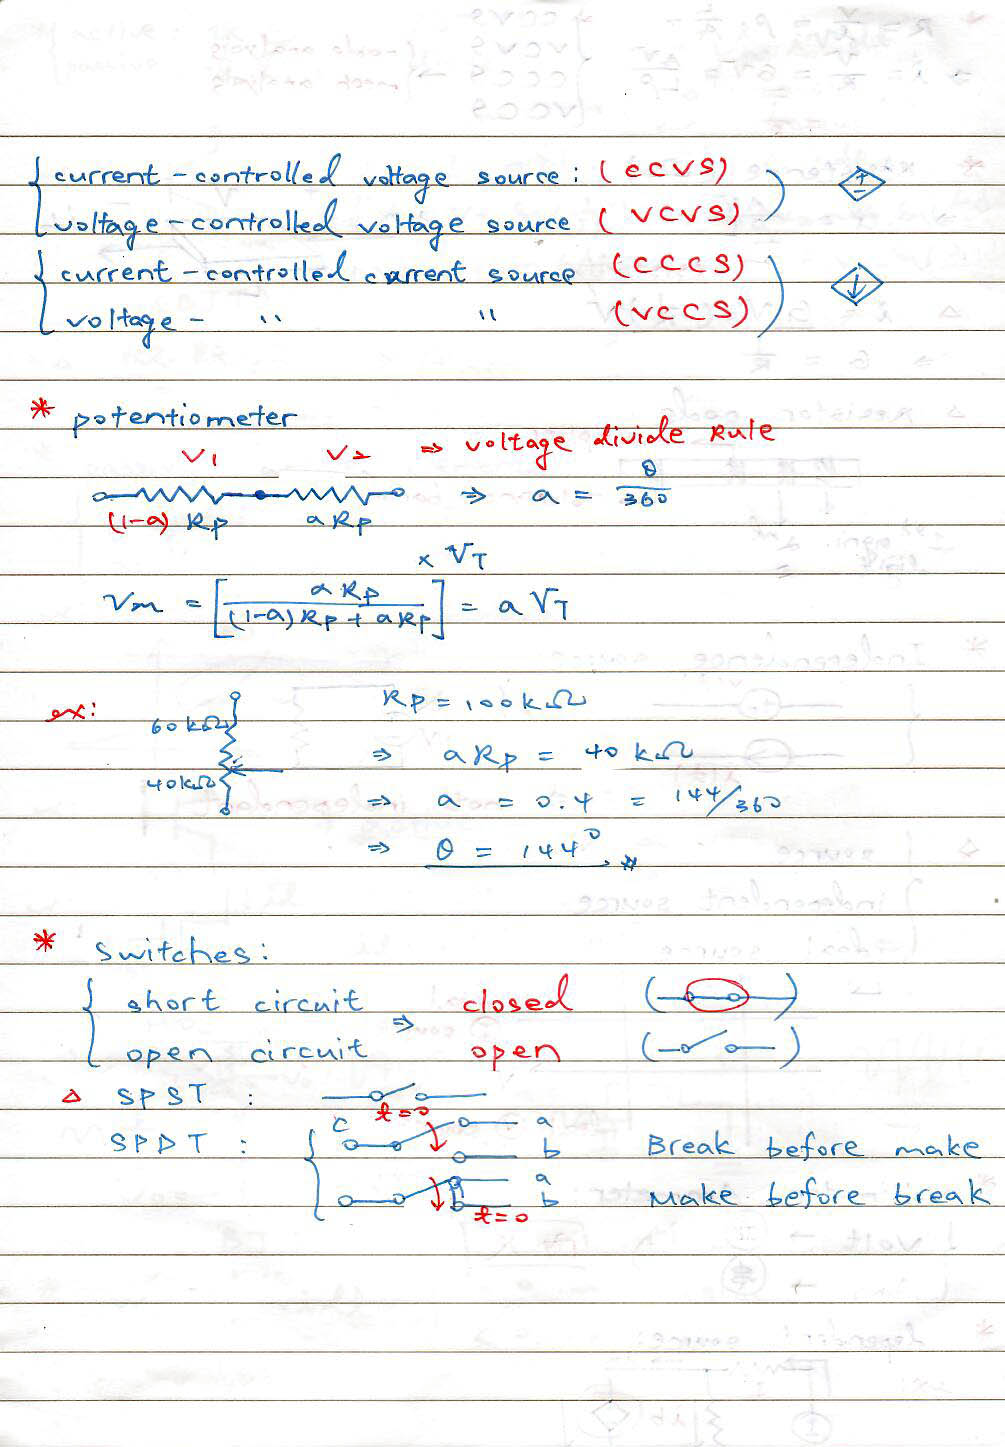 current-controlled voltage source : (CCVS)
voltage-controlled voltage source (VCVS)
current-controlled current source (CCCS)
voltage- " " (VCCS)
* potentiometer
V1 V2 ⇒ voltage divide Rule
(1-a) Rp a Rp ⇒ a = θ/360
Vm = [a Rp / (1-a)Rp + a Rp] × VT = a VT
ex: 60kΩ Rp = 100kΩ
40kΩ ⇒ a Rp = 40 kΩ
⇒ a = 0.4 = 144/360
⇒ θ = 144°
* switches:
short circuit ⇒ closed
open circuit open
Δ SPST : t=0
SPDT : c a b Break before make
a b t=0 Make before break